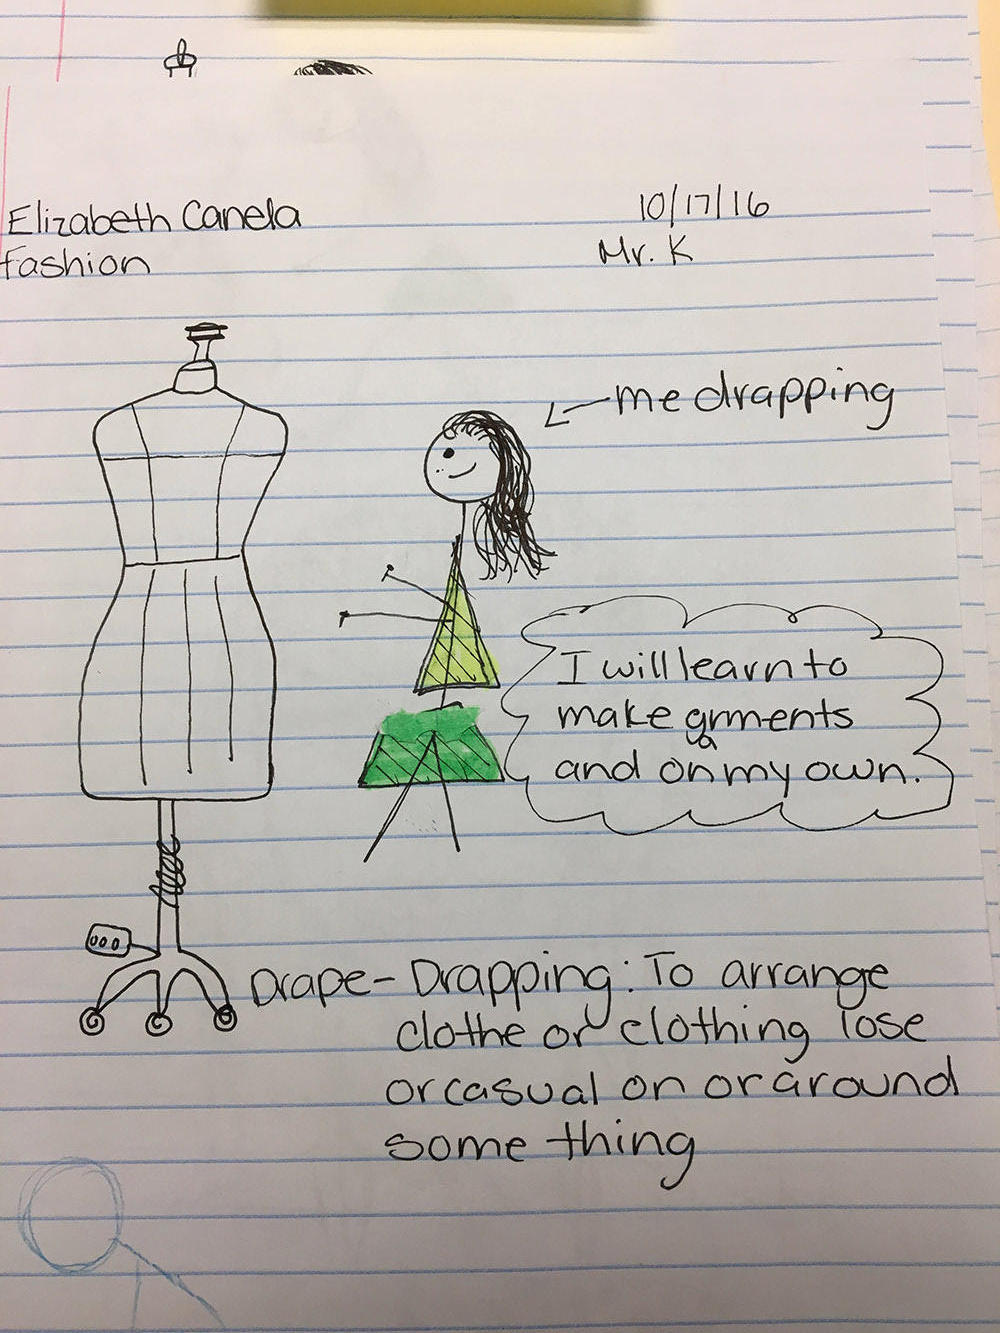 Elizabeth Canela
10/17/16
Fashion
Mr. K
me drapping
I will learn to
make garments
and on my own.
Drape- Drapping: To arrange
clothe or clothing lose
or casual on or around
some thing